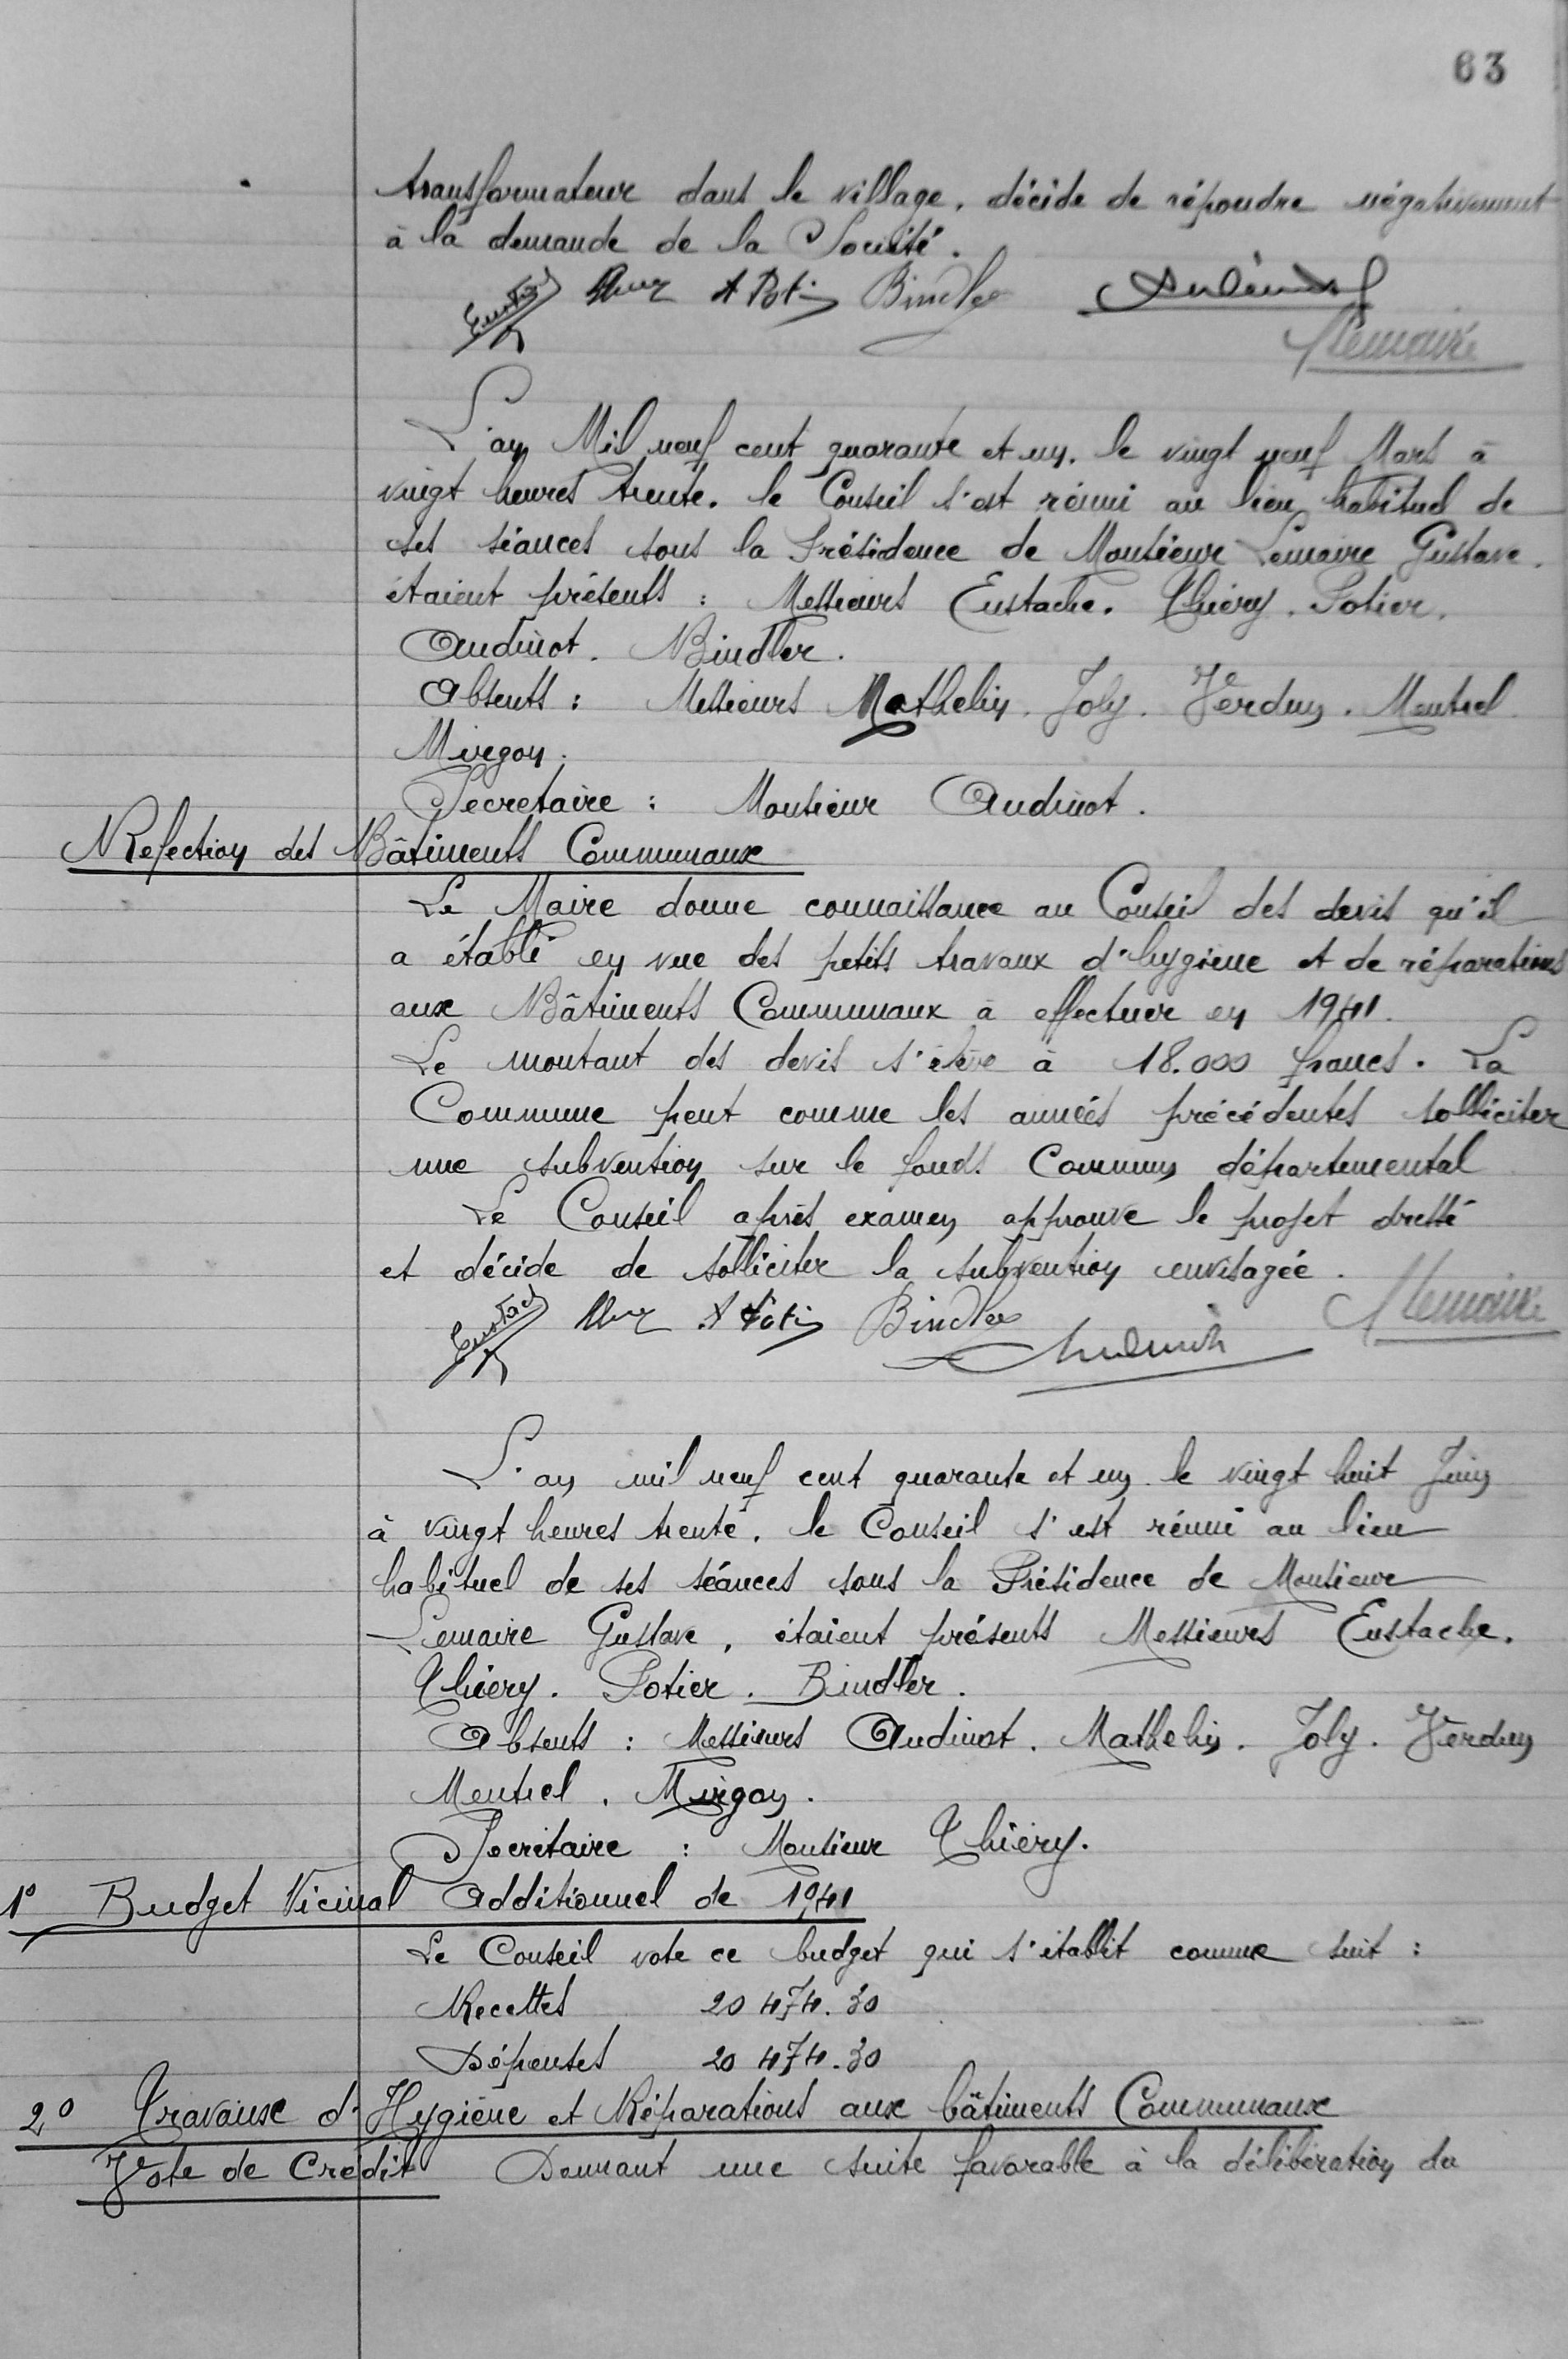 63
transformateur dans le village. décide de répondre négativement
à la demande de la Société.
Eustache A Potier Bindler Audinot
Lemaire
L'an Mil neuf cent quarante et un. le vingt neuf Mars à
vingt heures trente. le Conseil s'est réuni au lieu habituel de
ses séances sous la Présidence de Monsieur Lemaire Gustave.
étaient présents : Messieurs Eustache. Thiéry. Potier.
Audinot. Bindler.
Absents : Messieurs Mathelin. Joly. Verdun. Mentrel
Mirgon.
Secretaire : Monsieur Audinot.
Refection des Bâtiments Communaux
Le Maire donne connaissance au Conseil des devis qu'il
a établi en vue des petits travaux d'hygiène et de réparations
aux Bâtiments Communaux à effectuer en 1941.
Le montant des devis s'élève à 18.000 francs. La
Commune peut comme les années précédentes solliciter
une subvention sur le fonds Commun départemental
Le Conseil après examen approuve le projet dressé
et décide de solliciter la subvention envisagée.
Eustache A Potier Bindler Lemaire
Audinot
L'an mil neuf cent quarante et un. le vingt huit Juin
à vingt heures trente. le Conseil s'est réuni au lieu
habituel de ses séances sous la Présidence de Monsieur
Lemaire Gustave, étaient présents Messieurs Eustache.
Thiéry. Potier. Bindler.
Absents : Messieurs Audinot. Mathelin. Joly. Verdun
Mentrel. Mirgon.
Secrétaire : Monsieur Thiéry.
1° Budget Vicinal Additionnel de 1941
Le Conseil vote ce budget qui s'établit comme suit :
Recettes 20 474.30
Dépenses 20 474.30
2° Travaux d'Hygiène et Réparations aux bâtiments Communaux
Vote de Crédit Donnant une suite favorable à la délibération du